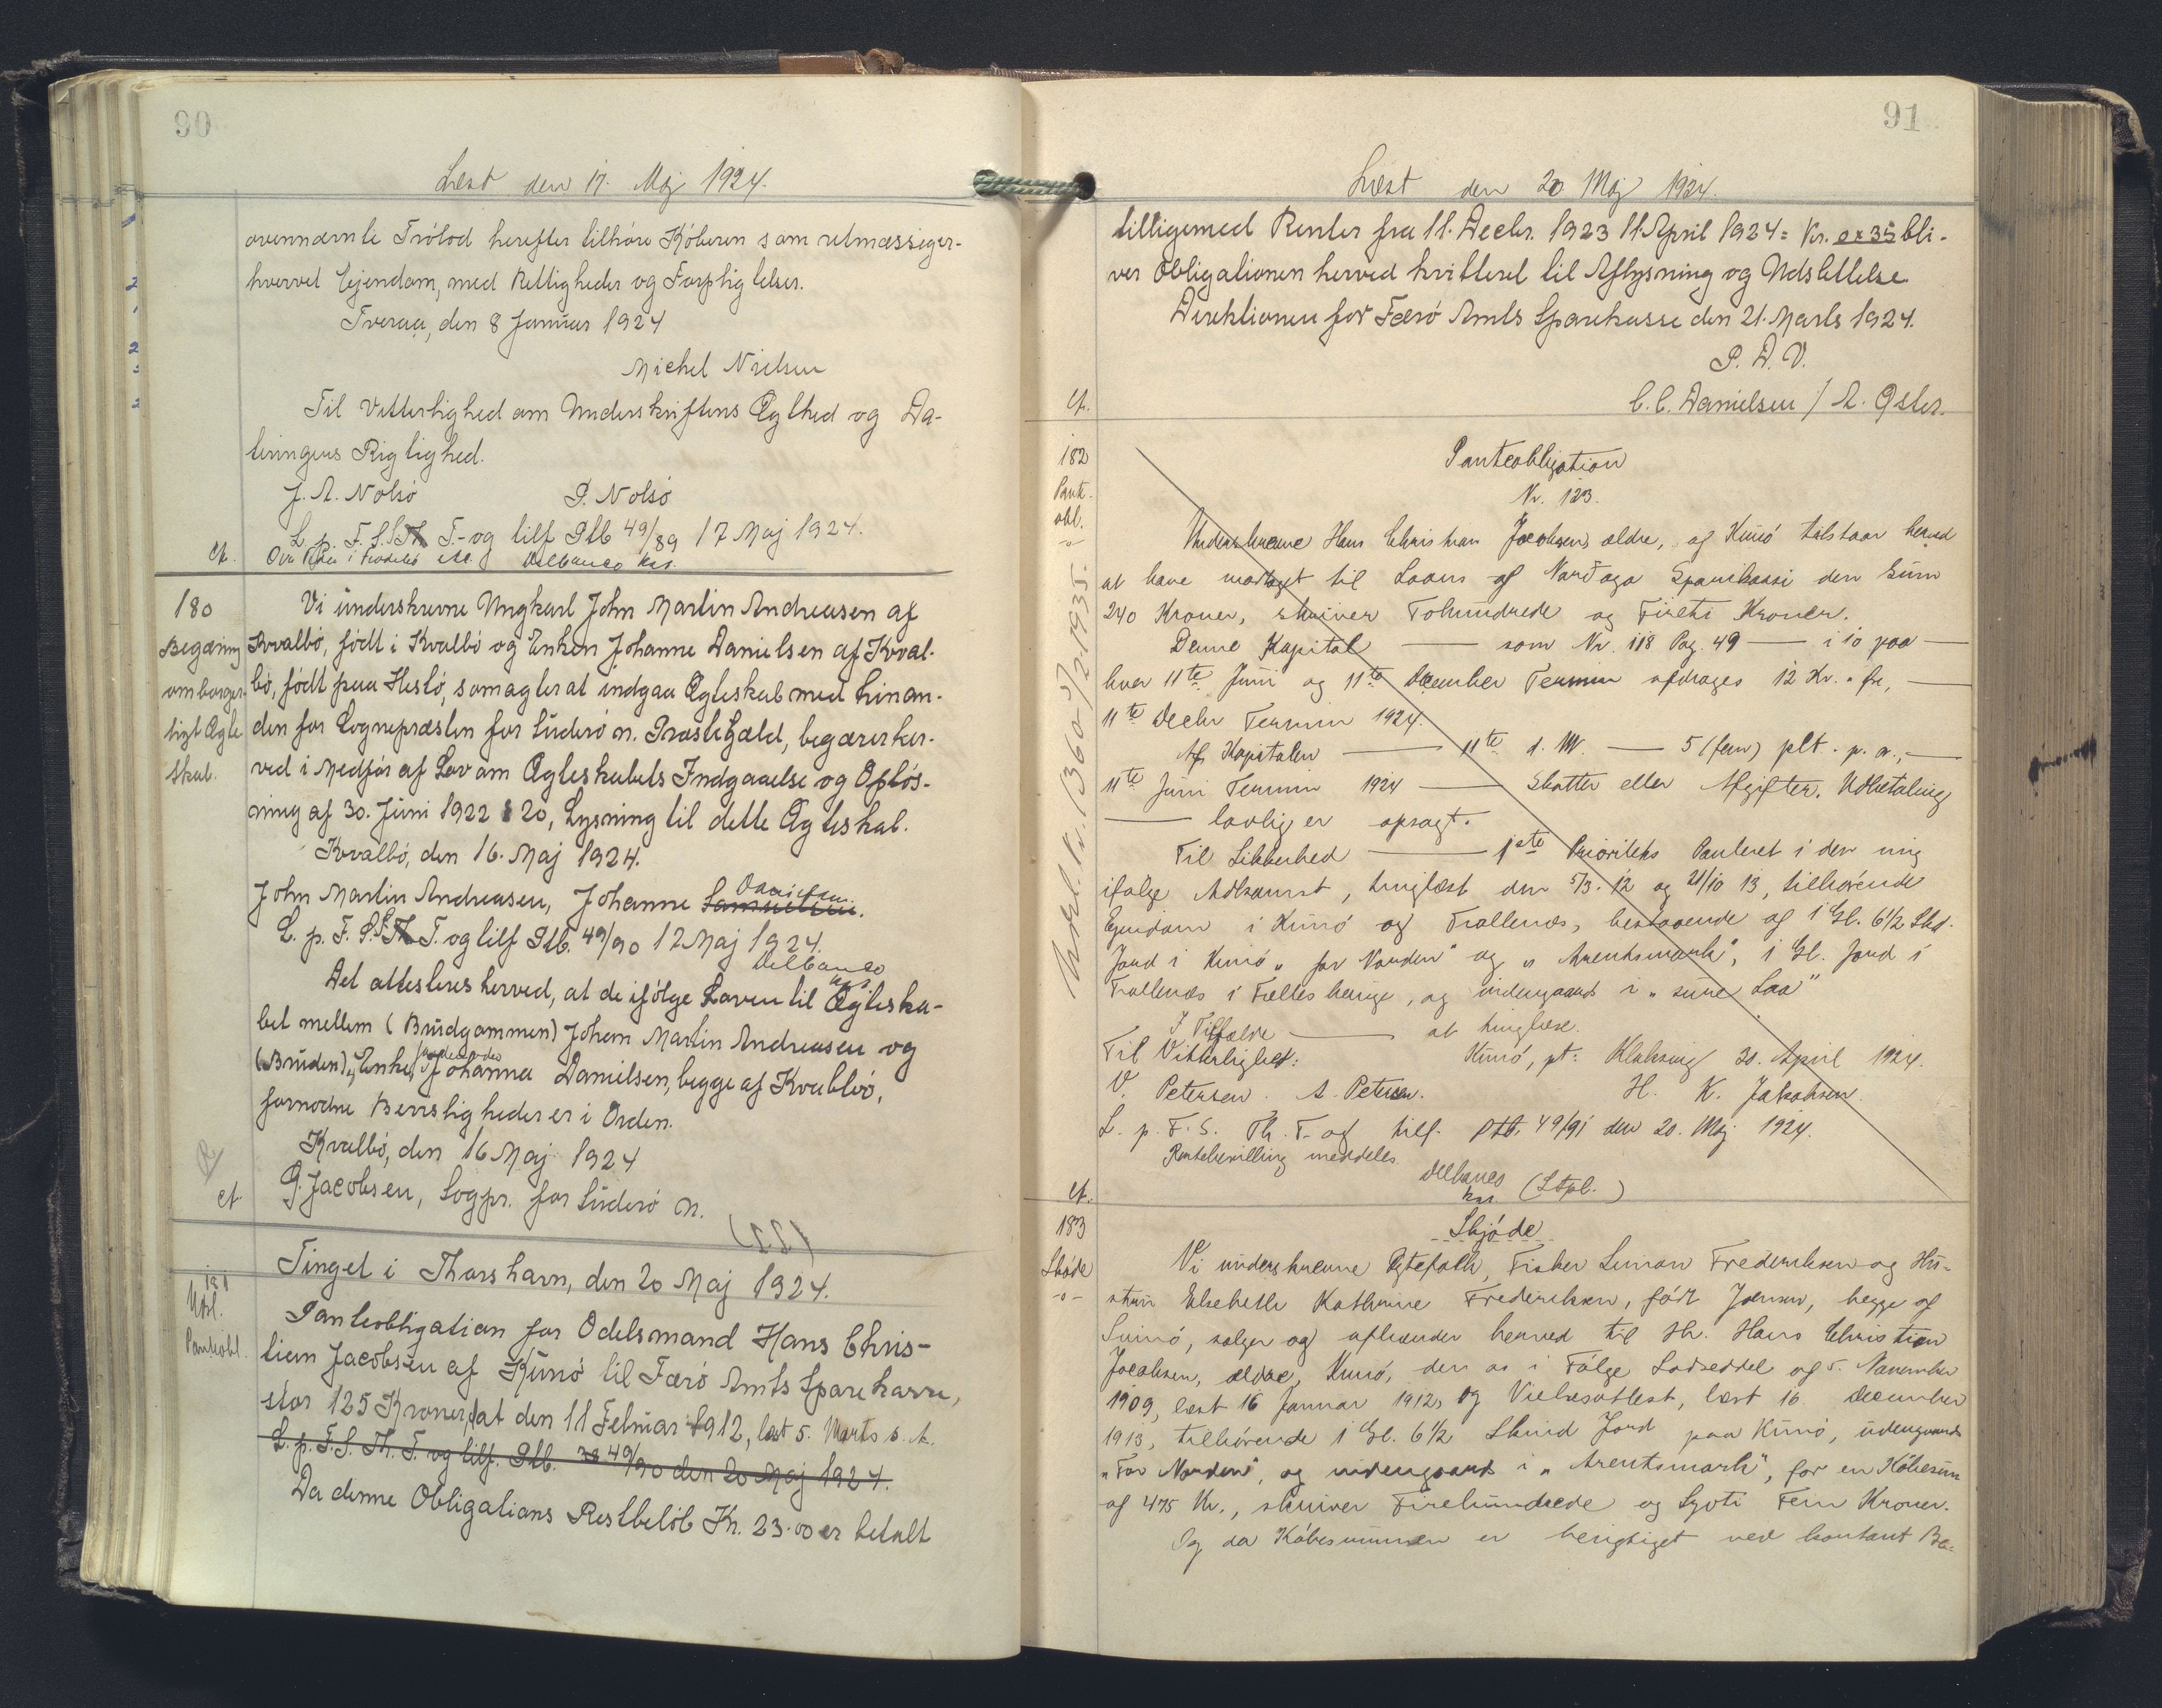 90
Læst den 17. Maj 1924.
ovennævnte Trölod herefter tilhöre Köberen som retmæssiger-
hvervet Ejendom, med Rettigheder og Forpligtelser.
Tveraa, den 8 Januar 1924
Michel Nielsen
Til Vitterlighed om Underskriftens Ægthed og Da-
teringens Rigtighed.
J. A. Nolsö P. Nolsö
L. p. F. S. T.- og tilf Ptb 49/89 17 Maj 1924.
Delbanco kst.
cf.
180
Begæring
om borger-
ligt Ægte
skab.
Vi underskrevne Ungkarl John Martin Andreasen af
Kvalbö, födt i Kvalbö og Enken Johanne Danielsen af Kval-
bö, födt paa Hestö, som agter at indgaa Ægteskab med hinan-
den for Sognepræsten for Suderö n. Præstegæld, begærer her-
ved i Medför af Lov om Ægteskabets Indgaaelse og Oplös-
ning af 30. Juni 1922 § 20, Lysning til dette Ægteskab.
Kvalbö, den 16. Maj 1924.
John Martin Andreasen, Johanne Samuelsen. Danielsen
L. p. F. S. T. og tilf Ptb. 49/90 17 Maj 1924.
Delbanco
kst.
Det attesteres herved, at de ifölge Loven til Ægteska-
bet mellem (Brudgommen) Johem Martin Andreasen og
(Bruden), Enke, Johanna Danielsen, begge af Kvalbö,
fornödne Bevisligheder er i Orden.
Kvalbö, den 16 Maj 1924
Jacobsen, Sogpr. for Suderö n.
(L.S.)
cf.
Tinget i Thorshavn, den 20 Maj 1924.
181
Udsl.
Panteobl.
Panteobligation for Odelsmand Hans Chris-
tian Jacobsen af Kunö til Færö Amts Sparekasse,
stor 125 Kroner, dat den 11 Februar 1912, læst 5. Marts s. A.
L. p. F. S. Th. T. og tilf. Ptb. 49/90 den 20 Maj 1924.
Da denne Obligations Restbelöb Kr. 23.00 er betalt
91
Læst den 20 Maj 1924.
tilligemed Renter fra 11. Decbr. 1923 11. April 1924 = Kr. 0 x 35 bli-
ver Obligationen herved kvitteret til Aflysning og Udslettelse
Direktionen for Færö Amts Sparekasse den 21. Marts 1924.
P. D. V.
C. C. Danielsen / A. Öster.
cf.
182
Pante-
obl.
Panteobligation
Nr. 123.
Underskrevne Hans Christian Jacobsen, ældre, af Kunö tilstaar herved
at have modtaget til Laans af Nordoya Sparikassi den Sum
240 Kroner, skriver Tohundrede og Fireti Kroner.
Denne Kapital —— som Nr. 118 Pag. 49 —— i 10 paa ——
hver 11te Juni og 11te December Termin afdrages 12 Kr. " Øre, ——
11te Decbr Termin 1924.
Af Kapitalen —— 11te d. M. —— 5 (fem) pCt. p. a., ——
11te Juni Termin 1924 —— Skatter eller Afgifter. Udbetaling
—— lovlig er opsagt.
Til Sikkerhed —— 1ste Prioritets Panteret i den mig
ifölge Adkomst, tinglæst den 5/3. 12 og 21/10 13, tilhörende
Ejendom i Kunö og Trollenæs, bestaaende af 1 Gl. 6 1/2 Skd.
Jord i Kunö "for Norden" og "Arentsmark", 1 Gl. Jord i
Trollenæs i Fælles hauge, og indengaards i
I Tilfælde —— at tinglæse.
Til Vitterlighed: Kunö, pt. Klaksvig 30. April 1924.
V. Petersen. A. Petersen. H. K. Jakobsen.
L. p. F. S. Th. T.- og tilf. Ptb. 49/91 den 20. Maj 1924.
Rentebevilling meddeles.
Delbanco
kst. (Stpl.)
cf.
183
Sköde
Skjöde
Vi underskrevne Ægtefolk, Fisker Simon Frederiksen og Hu-
stru Elsebeth Kathrine Frederiksen, födt Joensen, begge af
Svinö, sælger og afhænder herved til Hr. Hans Christian
Jacobsen, ældre, Kunö, den os i Fölge Lodseddel af 5. November
1909, læst 16 Januar 1912, og Vielsesattest, læst 16. December
1913, tilhörende 1 Gl. 6 1/2 Skind Jord paa Kunö, udengaards
"For Norden", og indengaards i "Arentsmark", for en Købesum
af 475 Kr., skriver Firehundrede og Syvti Fem Kroner.
Og da Købesummen er berigtiget ved kontant Be-